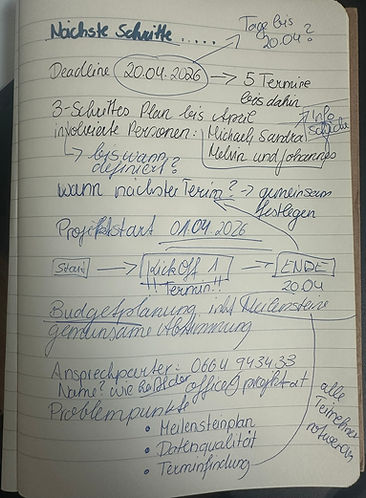 Nächste Schritte ....
Tage bis
20.04?
Deadline 20.04.2026 → 5 Termine
bis dahin
3-Schrittes Plan bis April
involvierte Personen: Michael, Sandra
Melvin und Johannes
Info
bis wann
definiert?
wann nächster Termin? → gemeinsam
festlegen
Projektstart 01.04.2026
Start → KickOff 1 → ENDE
!! Termin!!
20.04
Budgetplanung inkl Meilensteine
gemeinsame Abstimmung
Ansprechparter: 0664 943433
Name? wie
Problempunkte
• Meilensteinplan
• Datenqualität
• Terminfindung
alle
Teilnehmer